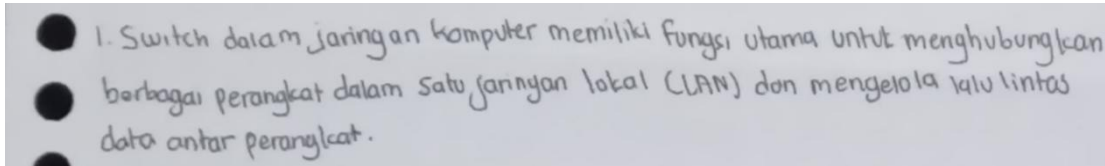 1. Switch dalam jaringan komputer memiliki fungsi utama untuk menghubungkan
berbagai perangkat dalam satu jaringan lokal (LAN) dan mengelola lalu lintas
data antar perangkat.